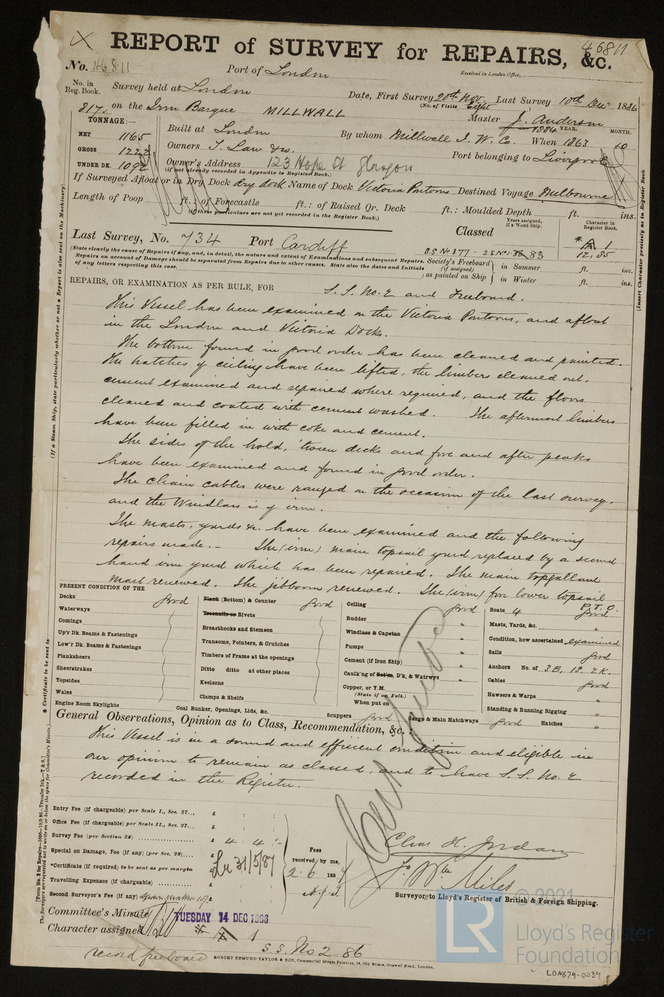 46811
REPORT of SURVEY for REPAIRS, &c.
No. 46811
Port of London
Received in London Office,
No. in Reg. Book.
Survey held at London
Date, First Survey 20th Nov Last Survey 10th Dec 1886
(No. of Visits Eight
817 on the Iron Barque MILLWALL
Master J. Anderson
TONNAGE:—
NET 1165
GROSS
UNDER DK. 1092
Built at London
By whom Millwall I. W. Co. When 1863
YEAR. MONTH.
Owners T. Law & Co.
Port belonging to Liverpool
Owner's Address 123 Hope St Glasgow
(If not already recorded in Appendix to Register Book.)
If Surveyed Afloat or in Dry Dock dry dock Name of Dock Victoria Pontoons Destined Voyage Melbourne
Length of Poop ft.: of Forecastle ft.: of Raised Qr. Deck ft.: Moulded Depth ft. ins.
(If these particulars are not yet recorded in the Register Book.)
Last Survey, No. 734 Port Cardiff
Classed
Years assigned, if a Wood Ship.
Character in Register Book.
A 1
12,85
Society's Freeboard (if assigned) as painted on Ship in Summer ft. ins.
in Winter ft. ins.
REPAIRS, OR EXAMINATION AS PER RULE, FOR S.S. No. 2 and Freeboard.
This Vessel has been examined on the Victoria Pontoons, and afloat
in the London and Victoria Docks.
The bottom found in good order has been cleaned and painted.
The hatches of ceiling have been lifted, the limber cleaned out,
cement examined and repaired where required, and the floors
cleaned and coated with cement washed. The aftermost limbers
have been filled in with coke and cement.
The sides of the hold, 'tween decks and fore and after peaks
have been examined and found in good order.
The chain cables were ranged on the occasion of the last survey,
and the Windlass is of iron.
The masts, yards &c. have been examined and the following
repairs made.— The (iron) main topsail yard replaced by a second
hand iron yard which has been repaired. The main topgallant
mast renewed. The jibboom renewed. The (iron) fore lower topsail
P.T.O.
PRESENT CONDITION OF THE
Decks good
Waterways
Comings
Up'r Dk. Beams & Fastenings
Low'r Dk. Beams & Fastenings
Planksheers
Sheerstrakes
Topsides
Wales
Engine Room Skylights
Plank (Bottom) & Counter good
Treenails or Rivets
Breasthooks and Stemson
Transoms, Pointers, & Crutches
Timbers of Frame at the openings
Ditto ditto at other places
Keelsons
Clamps & Shelfs
Coal Bunker, Openings, Lids, &c.
Scuppers good
Ceiling good
Rudder "
Windlass & Capstan "
Pumps "
Cement (if Iron Ship) "
Caulk'ng of Bottm, D'k, & Watrwys "
Copper, or Y.M. (State if on Felt.)
When put on
Cargo & Main Hatchways good
Boats 4 good
Masts, Yards, &c. "
Condition, how ascertained examined
Sails good
Anchors No. of 3B, 1S, 2K.
Cables good
Hawsers & Warps "
Standing & Running Rigging "
Hatches "
General Observations, Opinion as to Class, Recommendation, &c.:—
This Vessel is in a sound and efficient condition and eligible in
our opinion to remain as classed, and to have S.S. No. 2
recorded in the Register.
Entry Fee (if chargeable) per Scale I., Sec. 27... £
Office Fee (if chargeable) per Scale II., Sec. 27... £
Survey Fee (per Section 28) £ 4 4
Special on Damage, Fee (if any) (per Sec. 28) £
*Certificate (if required) to be sent as per margin
Travelling Expenses (if chargeable) £
Second Surveyor's Fee (if any)
Fees received by me,
2.6.1887
Chas. H. Jordan
Wm Miles
Surveyor to Lloyd's Register of British & Foreign Shipping.
Committee's Minute TUESDAY 14 DEC 1886
Character assigned A 1
S.S. No 2 86
record freeboard
ROBERT EDMUND TAYLOR & SON,
© 2021
LR
Lloyd's Register
Foundation
LON679-0039